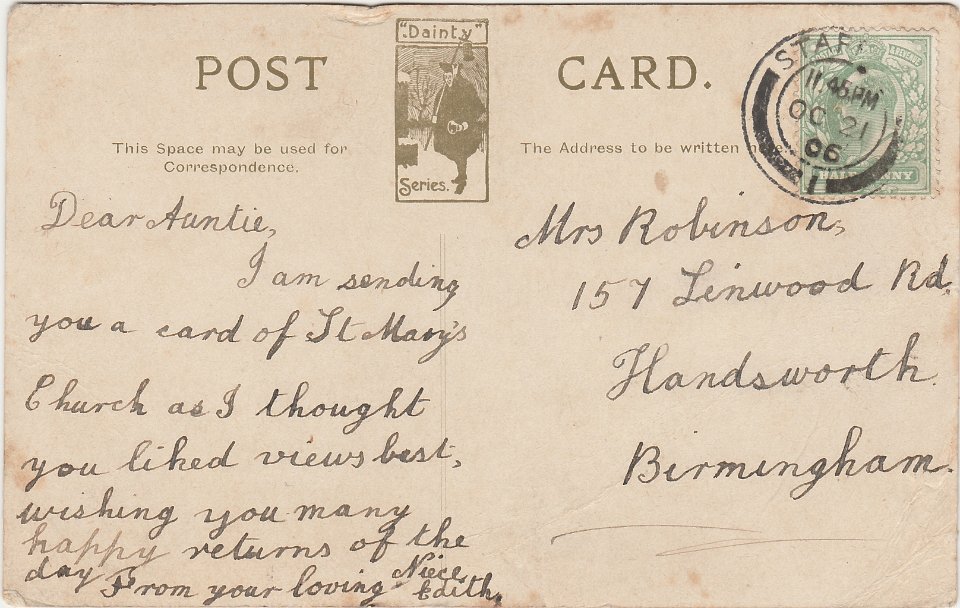 POST CARD.
"Dainty"
Series.
This Space may be used for
Correspondence.
The Address to be written
STAF
11.45 PM
OC 21
06
1
HALFPENNY
Dear Auntie,
I am sending
you a card of St Mary's
Church as I thought
you liked views best,
wishing you many
happy returns of the
day From your loving Niece
Edith,
Mrs Robinson,
157 Linwood Rd,
Handsworth.
Birmingham.